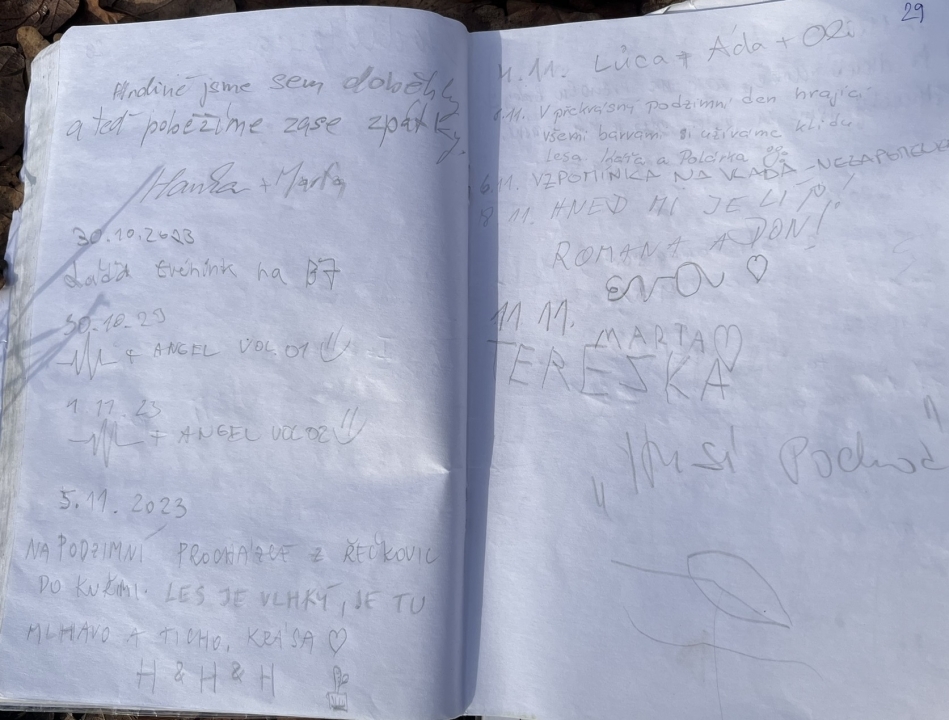 Hrdině jsme sem doběhly
a teď poběžíme zase zpátky.
Hanka + Marťa
30.10.2023
Láďa trénink na B7
30.10.23
+ ANGEL VOL.01
1.11.23
+ ANGEL VOL 02
5.11.2023
NA PODZIMNÍ PROCHÁZCE Z ŘEČKOVIC
DO KUŘIMI. LES JE VLHKÝ, JE TU
MLHAVO A TICHO, KRÁSA ♡
H & H & H
29
4.11. Lůca + Áďa + Oli
6.11. V překrásný podzimní den hrající
všemi barvami si užíváme klidu
lesa. a Polárka
6.11. VZPOMÍNKA NA VLAĎA - NEZAPOMENU
8.11. HNED MI JE LÍP!
ROMANA A DON!
♡
11.11.
MARTA♡
TEREŠKA